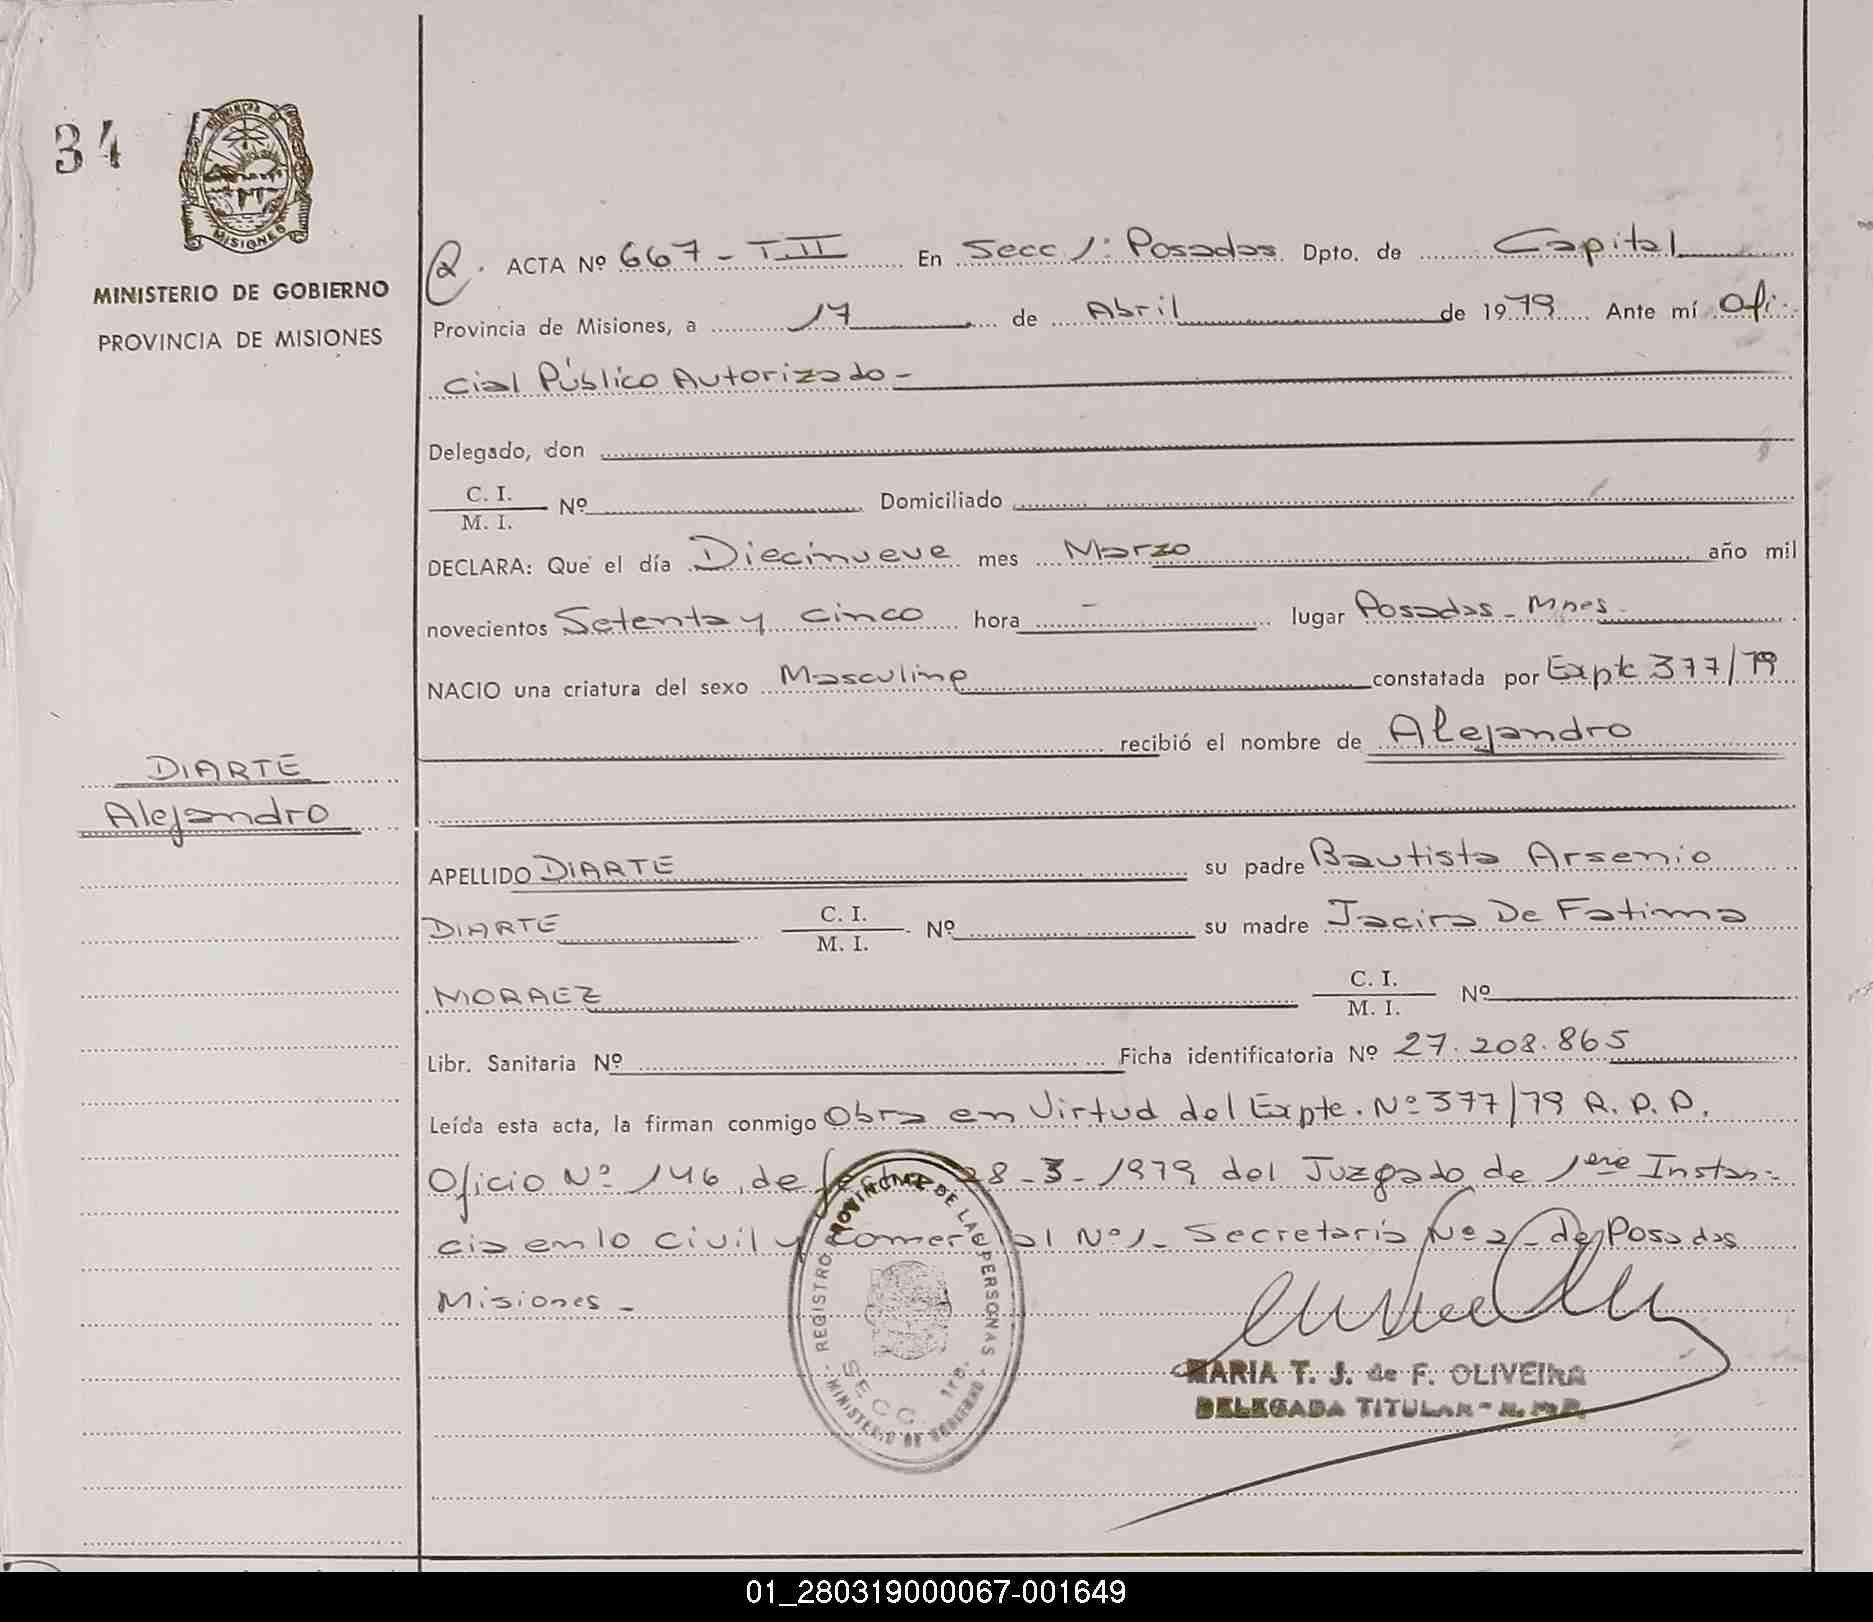 34
MISIONES
MINISTERIO DE GOBIERNO
PROVINCIA DE MISIONES
DIARTE
Alejandro
ACTA Nº 667 - T. II En Secc 1: Posadas Dpto. de Capital
Provincia de Misiones, a 17 de Abril de 1979 Ante mí Ofi-
cial Público Autorizado -
Delegado, don
C. I.
M. I. Nº Domiciliado
DECLARA: Que el día Diecinueve mes Marzo año mil
novecientos Setenta y cinco hora - lugar Posadas - Mnes -
NACIO una criatura del sexo Masculino constatada por Expte 377/79
recibió el nombre de Alejandro
APELLIDO DIARTE su padre Bautista Arsenio
DIARTE C. I. M. I. Nº su madre Jacira De Fatima
MORAEZ C. I. M. I. Nº
Libr. Sanitaria Nº Ficha identificatoria Nº 27.208.865
Leída esta acta, la firman conmigo Obra en Virtud del Expte. Nº 377/79 R.P.P.
Oficio Nº 146, de fecha 28-3-1979 del Juzgado de 1ere Instan-
cia en lo Civil y Comercial Nº 1- Secretaría Nº 2 - de Posadas
Misiones -
REGISTRO PROVINCIAL DE LAS PERSONAS
SECC. 1ra.
MINISTERIO DE GOBIERNO
MARIA T. J. de F. OLIVEIRA
DELEGADA TITULAR -
01_280319000067-001649